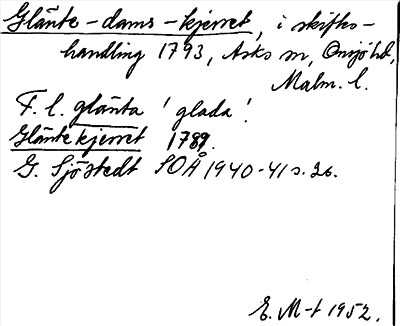 Glänte-dams-kjerret, i skifts-
handling 1793, Asks sn, Onsjö hd,
Malm. l.
F. l. glänta 'glada'.
Gläntekjerret 1789.
G. Sjöstedt SOÅ 1940-41 s. 26.
E. M-t 1952.